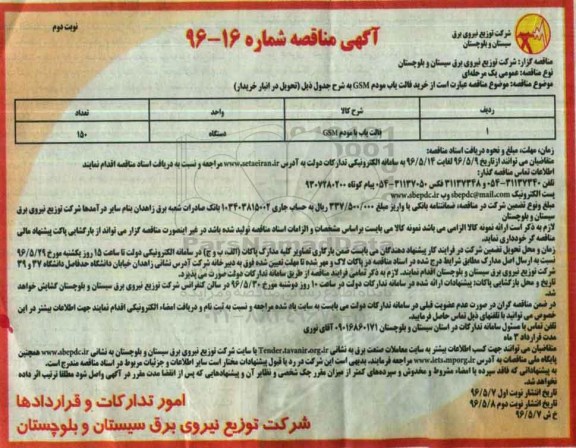 شرکت توزیع نیروی برق
سیستان و بلوچستان
آگهی مناقصه شماره ۱۶-۹۶
نوبت دوم
مناقصه گزار: شرکت توزیع نیروی برق سیستان و بلوچستان
نوع مناقصه: عمومی یک مرحله‌ای
موضوع مناقصه: موضوع مناقصه عبارت است از خرید فالت یاب مودم GSM به شرح جدول ذیل (تحویل در انبار خریدار)
ردیف شرح کالا واحد تعداد
۱ فالت یاب با مودم GSM دستگاه ۱۵۰
زمان، مهلت، مبلغ و نحوه دریافت اسناد مناقصه:
متقاضیان می توانند ازتاریخ ۹۶/۵/۹ لغایت ۹۶/۵/۱۴ به سامانه الکترونیکی تدارکات دولت به آدرس www.setaeiran.ir مراجعه و نسبت به دریافت اسناد مناقصه اقدام نمایند
اطلاعات تماس مناقصه گذار:
تلفن ۳۱۱۳۷۳۴۰-۰۵۴ و ۳۱۱۳۷۳۴۸ فکس ۳۱۱۳۷۰۵۰-۰۵۴ پیام کوتاه ۹۳۰۷۲۸۰۲۰۰
پست الکترونیک sbepdc@mail.com وب www.abepdc.ir
مبلغ ونوع تضمین شرکت در مناقصه: ضمانتنامه بانکی یا واریز مبلغ ۳۳۷/۵۰۰/۰۰۰ ریال به حساب جاری ۰۱۰۳۴۰۳۸۱۵۰۰۲ بانک صادرات شعبه برق زاهدان بنام سایر درآمدها شرکت توزیع نیروی برق
سیستان و بلوچستان
لازم به ذکر است ارائه نمونه کالا الزامی می باشد نمونه کالا می بایست براساس مشخصات و الزامات اسناد مناقصه تولید شده باشد در غیر اینصورت مناقصه گزار می تواند از بازگشایی پاکت پیشنهاد مالی
مناقصه گر خودداری نماید.
زمان و محل تحویل تضمین شرکت در فرایند کار پیشنهاد دهندگان می بایست ضمن بارگزاری تصاویر کلیه مدارک پاکات (الف، ب و ج) در سامانه الکترونیکی دولت تا ساعت ۱۵ روز یکشنبه مورخ ۹۶/۵/۲۹
نسبت به ارسال اصل مدارک مطابق شرایط درج شده در اسناد مناقصه در پاکات لاک و مهر شده تا مهلت تعیین شده فوق به دبیر خانه شرکت آدرس نشانی زاهدان خیابان دانشگاه حدفاصل دانشگاه ۳۷ و ۳۹
شرکت توزیع نیروی برق سیستان و بلوچستان اقدام نمایند. لازم به ذکر تمامی فرایند مناقصه از طریق سامانه تدارکات دولت صورت می پذیرد.
تاریخ و محل بازگشایی پاکات: پیشنهادات ارائه شده در سامانه تدارکات دولت در ساعت ۱۰ روز دوشنبه مورخ ۹۶/۵/۳۰ در سالن کنفرانس شرکت توزیع نیروی برق سیستان و بلوچستان گشایش خواهد
شد.
در ضمن مناقصه گران در صورت عدم عضویت قبلی در سامانه تدارکات دولت می بایست به سایت یاد شده مراجعه و نسبت به ثبت نام و دریافت امضاء الکترونیکی اقدام نمایند جهت اطلاعات بیشتر در این
خصوص می توانید با تلفنهای ذیل تماس حاصل فرمایید.
تلفن تماس با مسئول سامانه تدارکات در استان سیستان و بلوچستان ۰۹۰۱۶۸۶۰۱۷۱ آقای نوری
مدت قرارداد ۳ ماه
متقاضیان می توانند جهت کسب اطلاعات بیشتر به سایت معاملات صنعت برق به نشانی Tender.tavanir.org.ir یا سایت شرکت توزیع نیروی برق سیستان و بلوچستان به نشانی www.abepdc.ir همچنین
پایگاه ملی مناقصات به آدرس www.iets.mporg.ir مراجعه فرمایند. بدیهی است این شرکت در رد یا قبول پیشنهادات مختار است سایر اطلاعات و جزئیات مربوط در اسناد مناقصه مندرج است.
به پیشنهاداتی که فاقد سپرده یا امضاء مشروط و مخدوش و سپرده‌های کمتر از میزان مقرر چک شخصی و نظایر آن و پیشنهادهایی که پس از انقضا مدت مقرر در آگهی واصل شود مطلقا ترتیب اثر داده
نخواهد شد.
تاریخ انتشار نوبت اول ۹۶/۵/۷
تاریخ انتشار نوبت دوم ۹۶/۵/۸
خ ش ۹۶/۵/۷
امور تدارکات و قراردادها
شرکت توزیع نیروی برق سیستان و بلوچستان